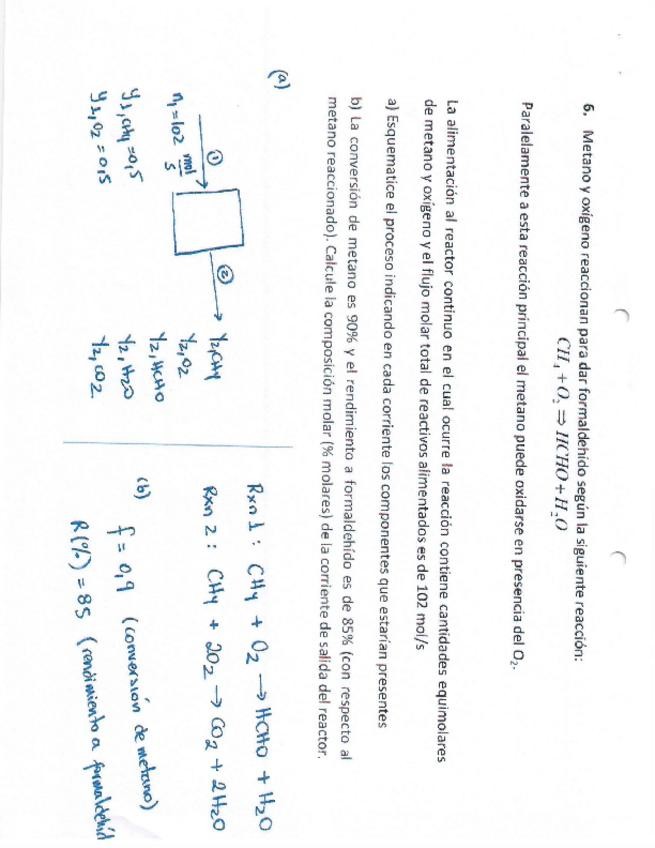 6. Metano y oxígeno reaccionan para dar formaldehído según la siguiente reacción:
CH₄ + O₂ ⇒ HCHO + H₂O
Paralelamente a esta reacción principal el metano puede oxidarse en presencia del O₂.
La alimentación al reactor continuo en el cual ocurre la reacción contiene cantidades equimolares
de metano y oxígeno y el flujo molar total de reactivos alimentados es de 102 mol/s
a) Esquematice el proceso indicando en cada corriente los componentes que estarían presentes
b) La conversión de metano es 90% y el rendimiento a formaldehído es de 85% (con respecto al
metano reaccionado). Calcule la composición molar (% molares) de la corriente de salida del reactor.
(a)
①
n₁ = 102 mol/s
y₁,CH₄ = 0,5
y₁,O₂ = 0,5
②
y₂,CH₄
y₂,O₂
y₂,HCHO
y₂,H₂O
y₂,CO₂
Rxn 1 : CH₄ + O₂ → HCHO + H₂O
Rxn 2 : CH₄ + 2O₂ → CO₂ + 2H₂O
(b)
f = 0,9 (conversión de metano)
R(%) = 85 (rendimiento a formaldehíd